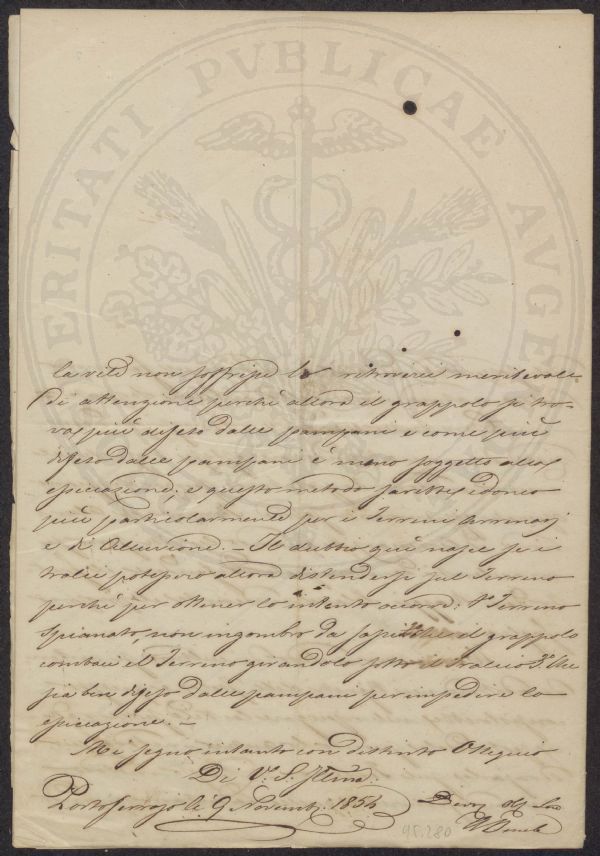 VERITATI PVBLICAE AVGE
la vite non soffrisse lo ritroverei meritevole
di attenzione perchè allora il grappolo si tro-
va più difeso dalle pampani e come più
difeso dalle pampani è meno soggetto alla
essiccazione. e questo metodo sarebbe idoneo
più particolarmente per i Terreni Arrenosi
e di Alluvione. – Il dubbio quì nasce se i
tralci potessero allora distendersi sul Terreno
perchè per ottener lo intento occorre: 1º Terreno
spianato, non ingombro da sassi il grappolo
combaci el Terreno girandolo sotto il tralcio 3º Che
sia ben difeso dalle pampani per impedire la
essiccazione. –
Mi segno intanto con distinto Ossequio
Di V. S. Illma
Portoferrajo li 9 Novembre 1854
95.280